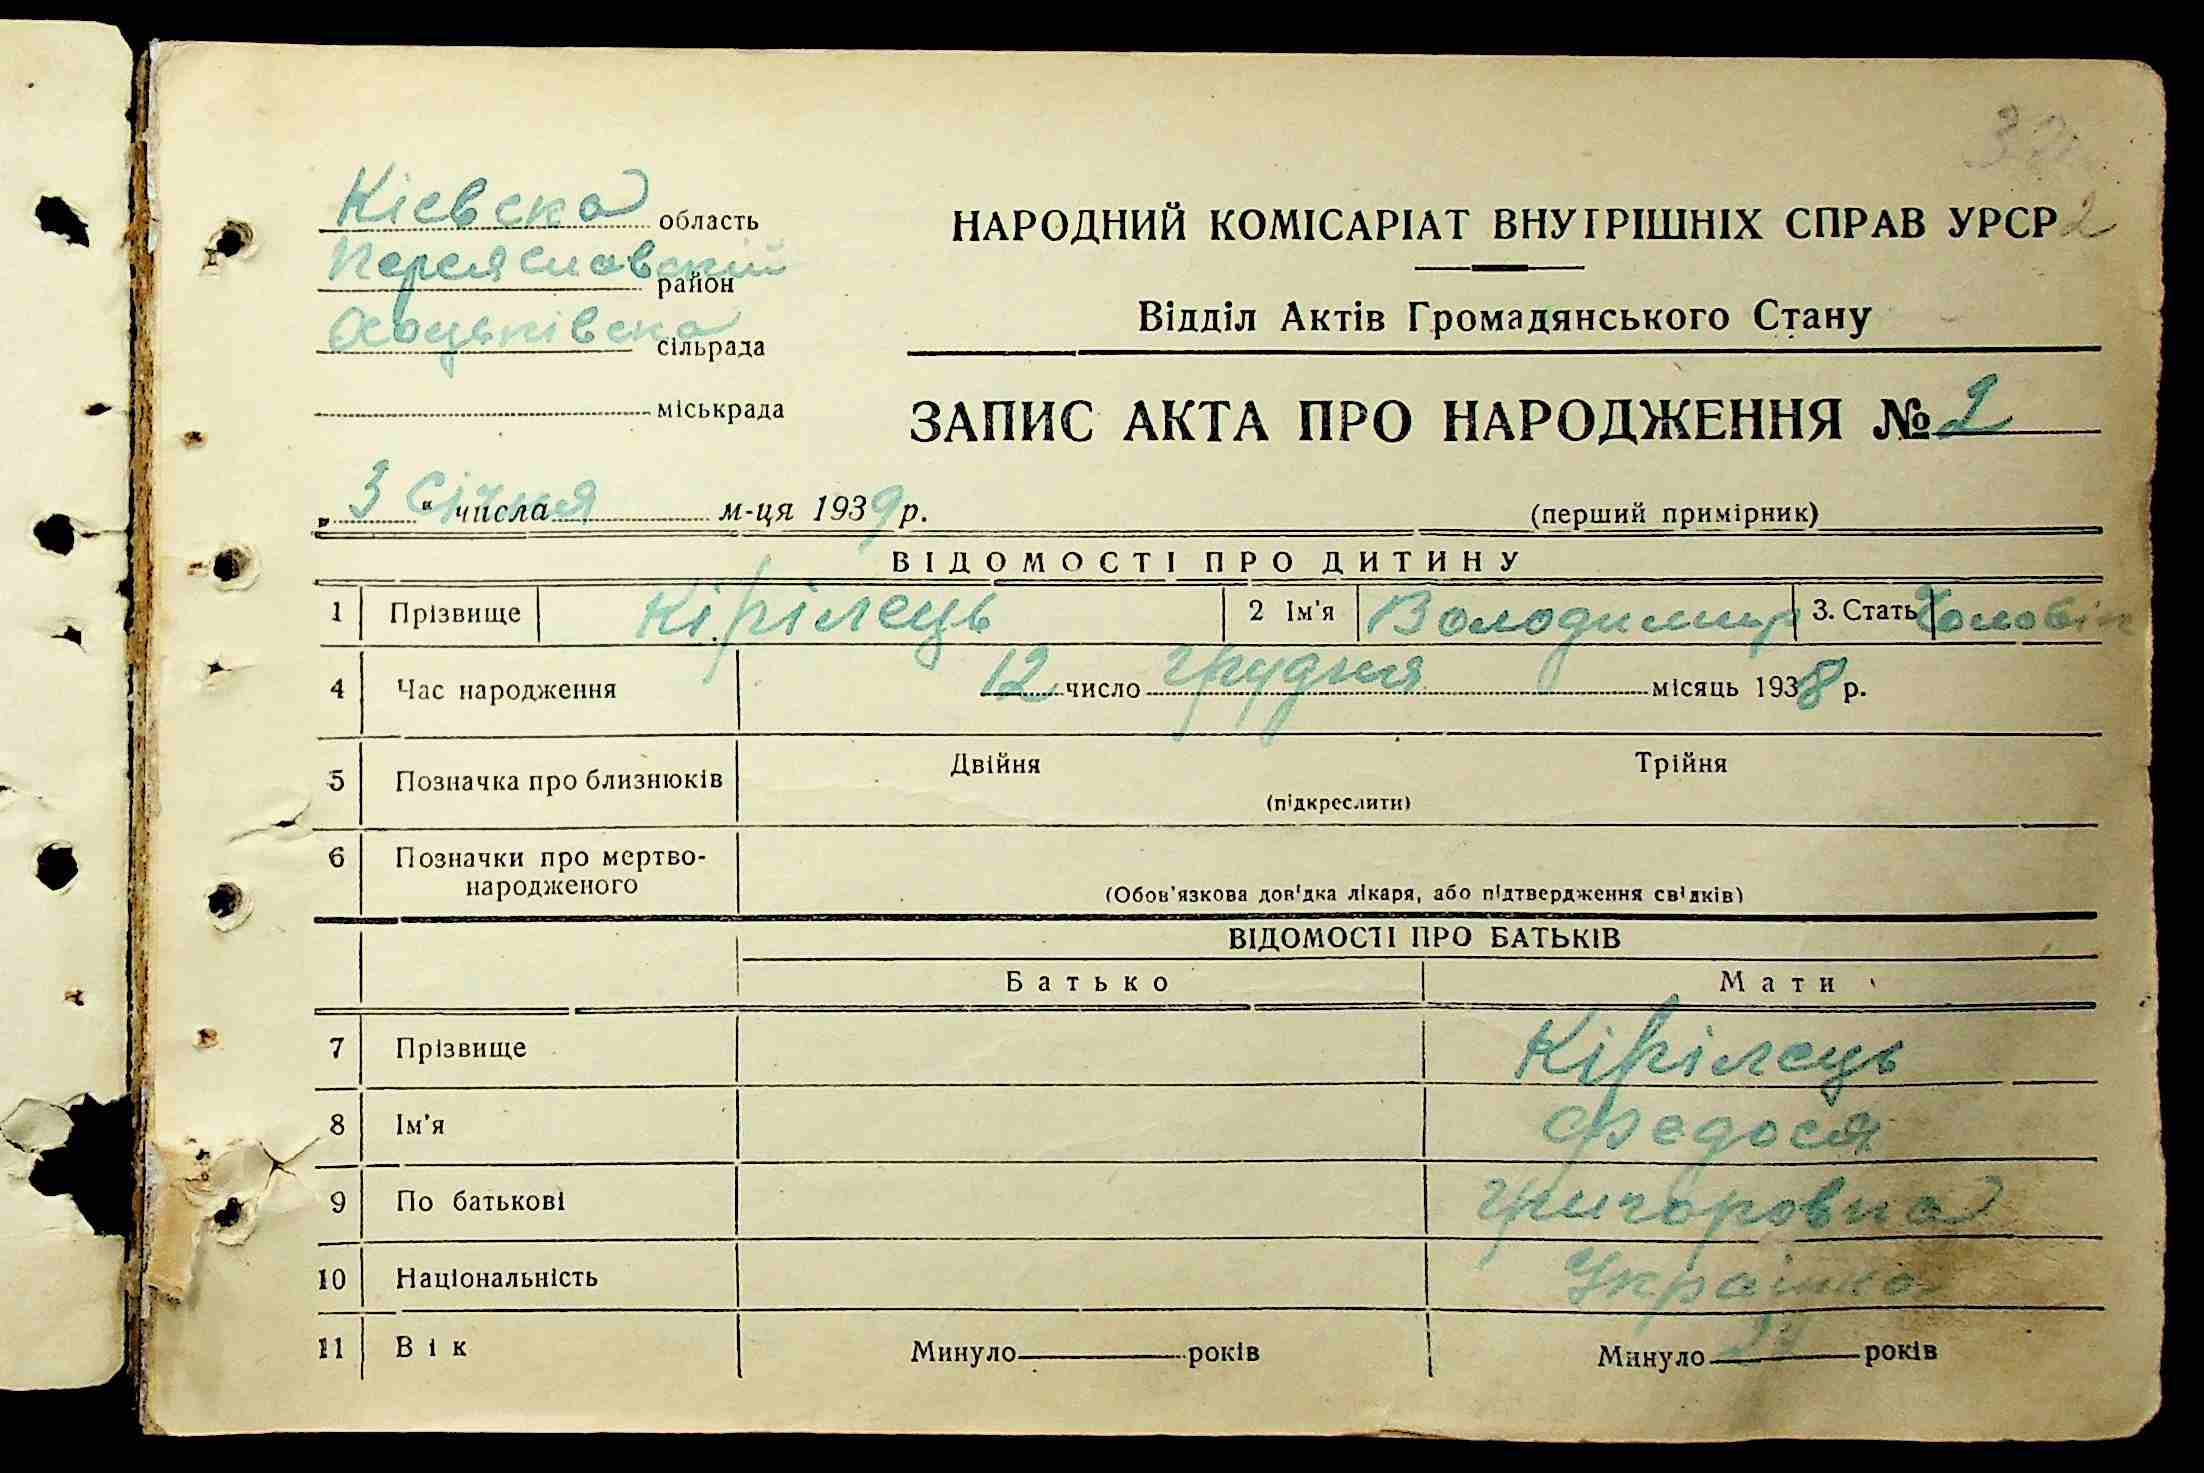 Кієвска область
Переяславскій район
Хоцьківска сільрада
міськрада
НАРОДНИЙ КОМІСАРІАТ ВНУТРІШНІХ СПРАВ УРСР 2
Відділ Актів Громадянського Стану
ЗАПИС АКТА ПРО НАРОДЖЕННЯ № 2
„3“ числа Січня м-ця 1939 р.
(перший примірник)
ВІДОМОСТІ ПРО ДИТИНУ
1 Прізвище Кірілець 2 Ім'я Володимир 3. Стать Чоловік
4 Час народження 12 число грудня місяць 1938 р.
5 Позначка про близнюків Двійня Трійня
(підкреслити)
6 Позначки про мертво-
народженого
(Обов'язкова довідка лікаря, або підтвердження свідків)
ВІДОМОСТІ ПРО БАТЬКІВ
Батько Мати
7 Прізвище Кірілець
8 Ім'я Федося
9 По батькові Григоровна
10 Національність Українка
11 Вік Минуло років Минуло років